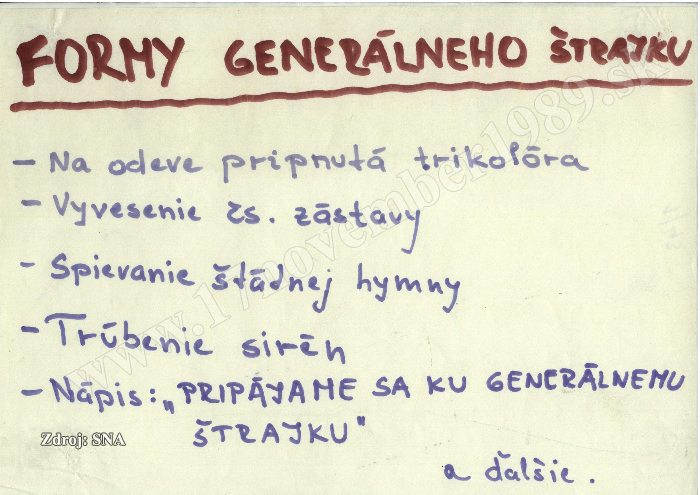 FORMY GENERÁLNEHO ŠTRAJKU
- Na odeve pripnutá trikolóra
- Vyvesenie čs. zástavy
- Spievanie štádnej hymny
- Trúbenie sirén
- Nápis: „PRIPÁJAME SA KU GENERÁLNEMU
ŠTRAJKU"
a ďalšie.
Zdroj: SNA
www.17november1989.sk